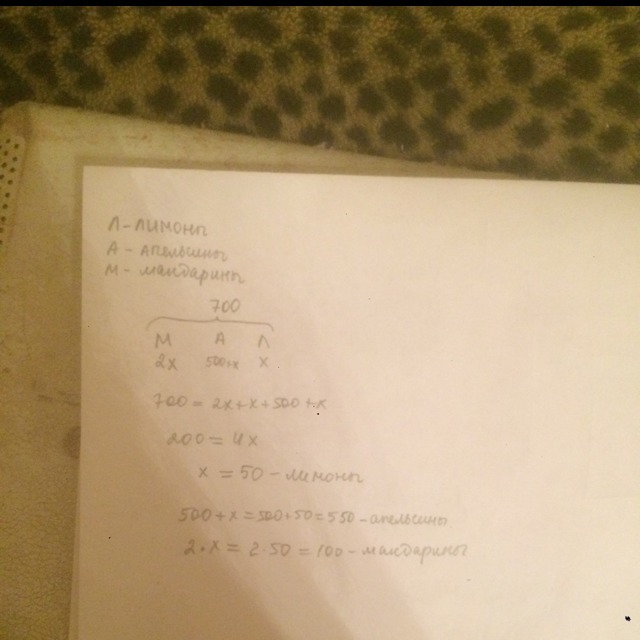 Л-лимоны
А - апельсины
М - мандарины
700
М А Л
2х 500+х х
700 = 2х+х+500+х
200 = 4х
х = 50 - лимоны
500+х=500+50=550-апельсины.
2·х = 2·50 = 100 - мандарины